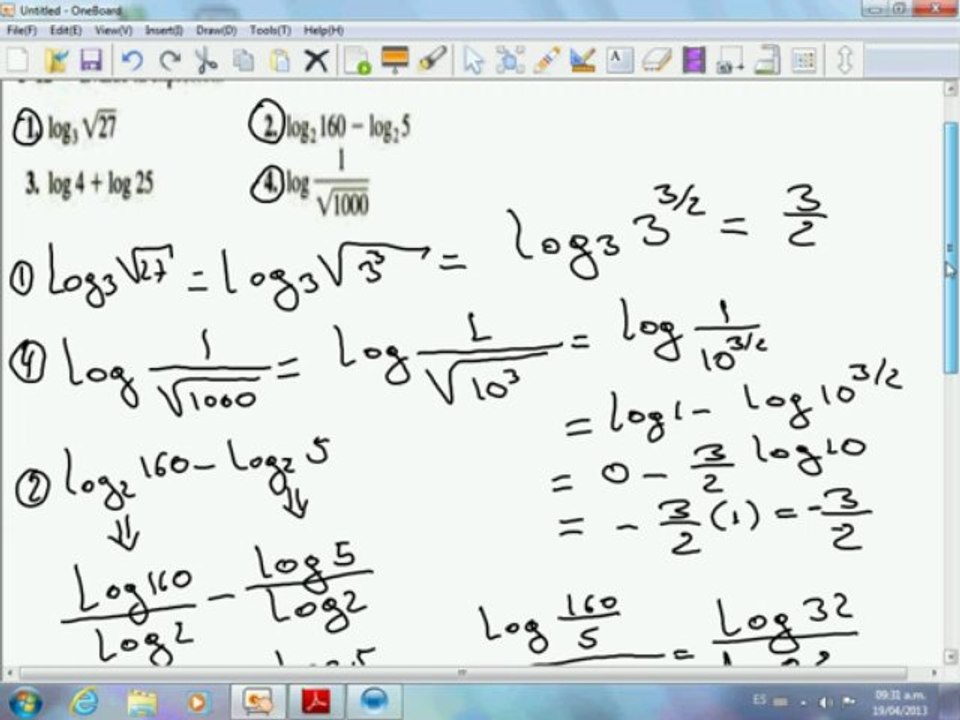 Untitled - OneBoard
File(F) Edit(E) View(V) Insert(I) Draw(D) Tools(T) Help(H)
1. log₃ √27
2. log₂ 160 – log₂ 5
3. log 4 + log 25
4. log 1/√1000
① log₃ √27 = log₃ √3³ = log₃ 3^3/2 = 3/2
④ log 1/√1000 = log 1/√10³ = log 1/10^3/2
= log 1 - log 10^3/2
= 0 - 3/2 log 10
= - 3/2 (1) = - 3/2
② log₂ 160 - log₂ 5
log 160/log 2 - log 5/log 2
log 160/5 = log 32
ES
09:31 a.m.
19/04/2013